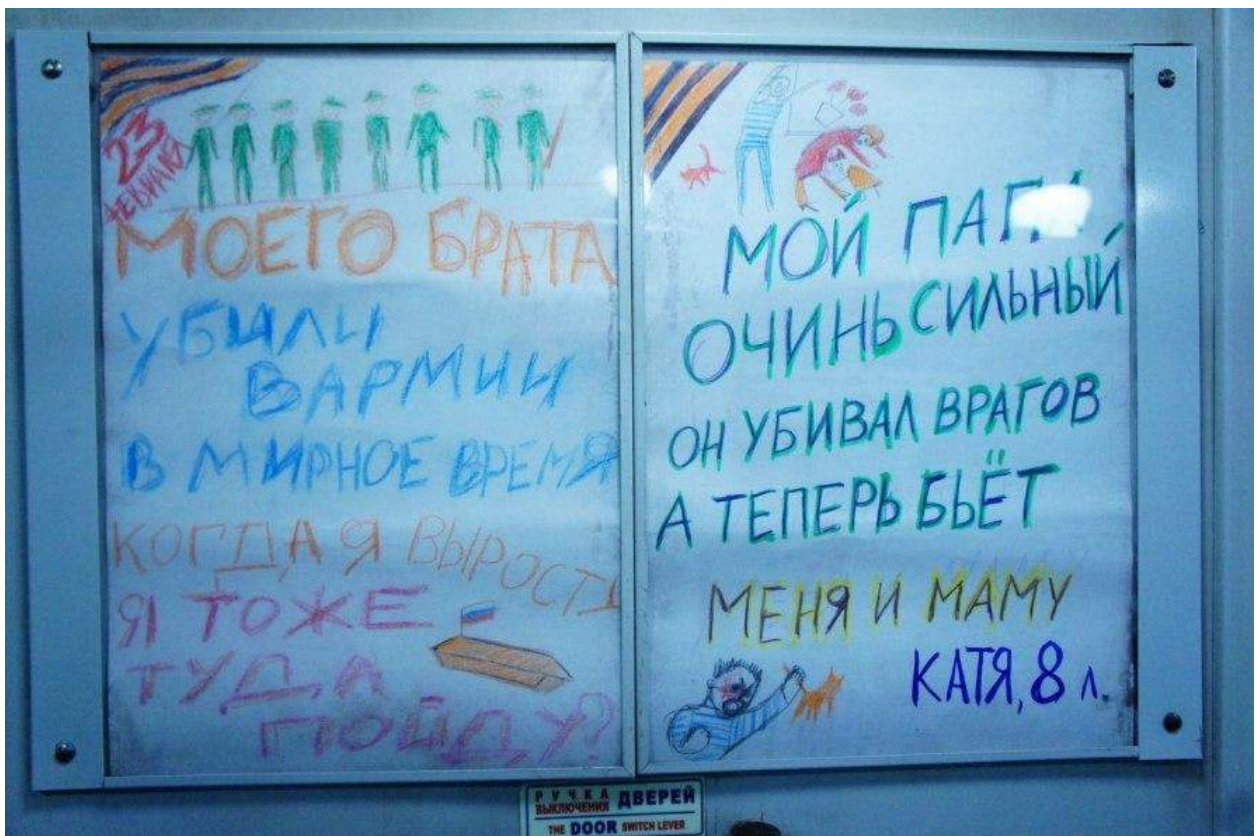 23
ФЕВРАЛЯ
МОЕГО БРАТА
УБИЛИ
ВАРМИИ
В МИРНОЕ ВРЕМЯ
КОГДА Я ВЫРОСТУ
Я ТОЖЕ
ТУДА
ПОЙДУ?
МОЙ ПАПА
ОЧИНЬ СИЛЬНЫЙ
ОН УБИВАЛ ВРАГОВ
А ТЕПЕРЬ БЬЁТ
МЕНЯ И МАМУ
КАТЯ, 8 л.
РУЧКА
ВЫКЛЮЧЕНИЯ ДВЕРЕЙ
THE DOOR SWITCH LEVER